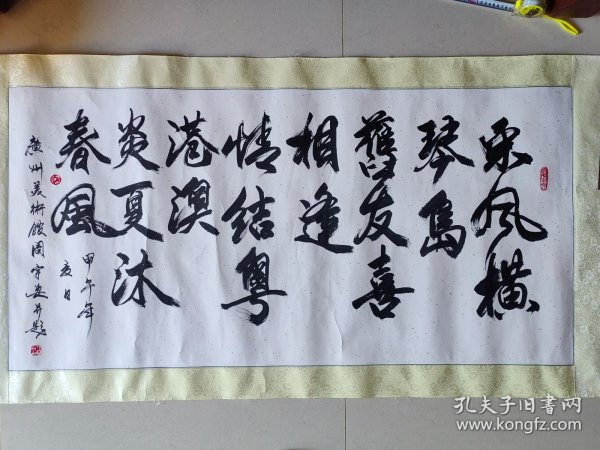 采风横
琴島
舊友喜
相逢
情结粤
港澳
炎夏沐
春風
甲午年
夏日
廣州美術館周宇安并题
孔夫子旧书网
www.kongfz.com